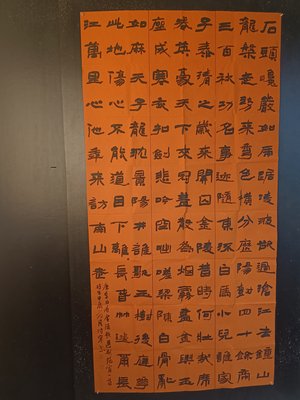 石頭巉巖如虎踞凌波欲過滄江去鍾山
龍盤走勢來秀色橫分歷陽樹四十餘帝
三百秋功名事迹隨東流白馬小兒誰家
子泰清之歲來關囚金陵昔時何壯哉席
卷英豪天下來冠蓋散為煙霧盡金輿玉
座成寒灰扣劍悲吟空咄嗟梁陳白骨亂
如麻天子龍沈景陽井誰歌玉樹後庭花
此地傷心不能道目下離離長春草送爾長
江萬里心他年來訪南山老
唐李白詩金陵歌送別范宣